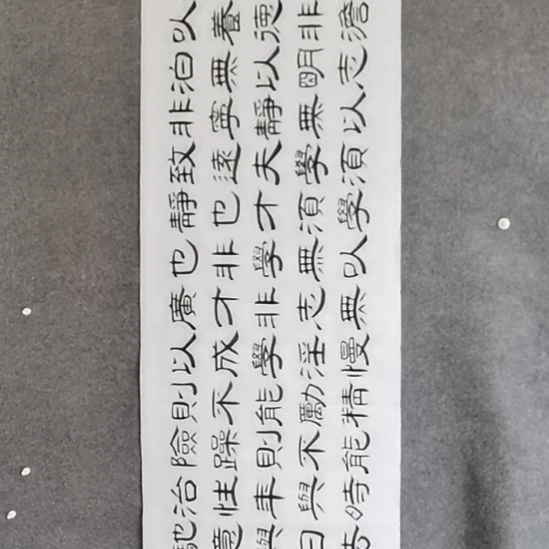 以養德非澹
泊無以明志
非寧靜無以
致遠夫學須
靜也才須學
也非學無以
廣才非志無
以成學淫慢
則不能勵精
險躁則不能
治性年與時
馳意與日去